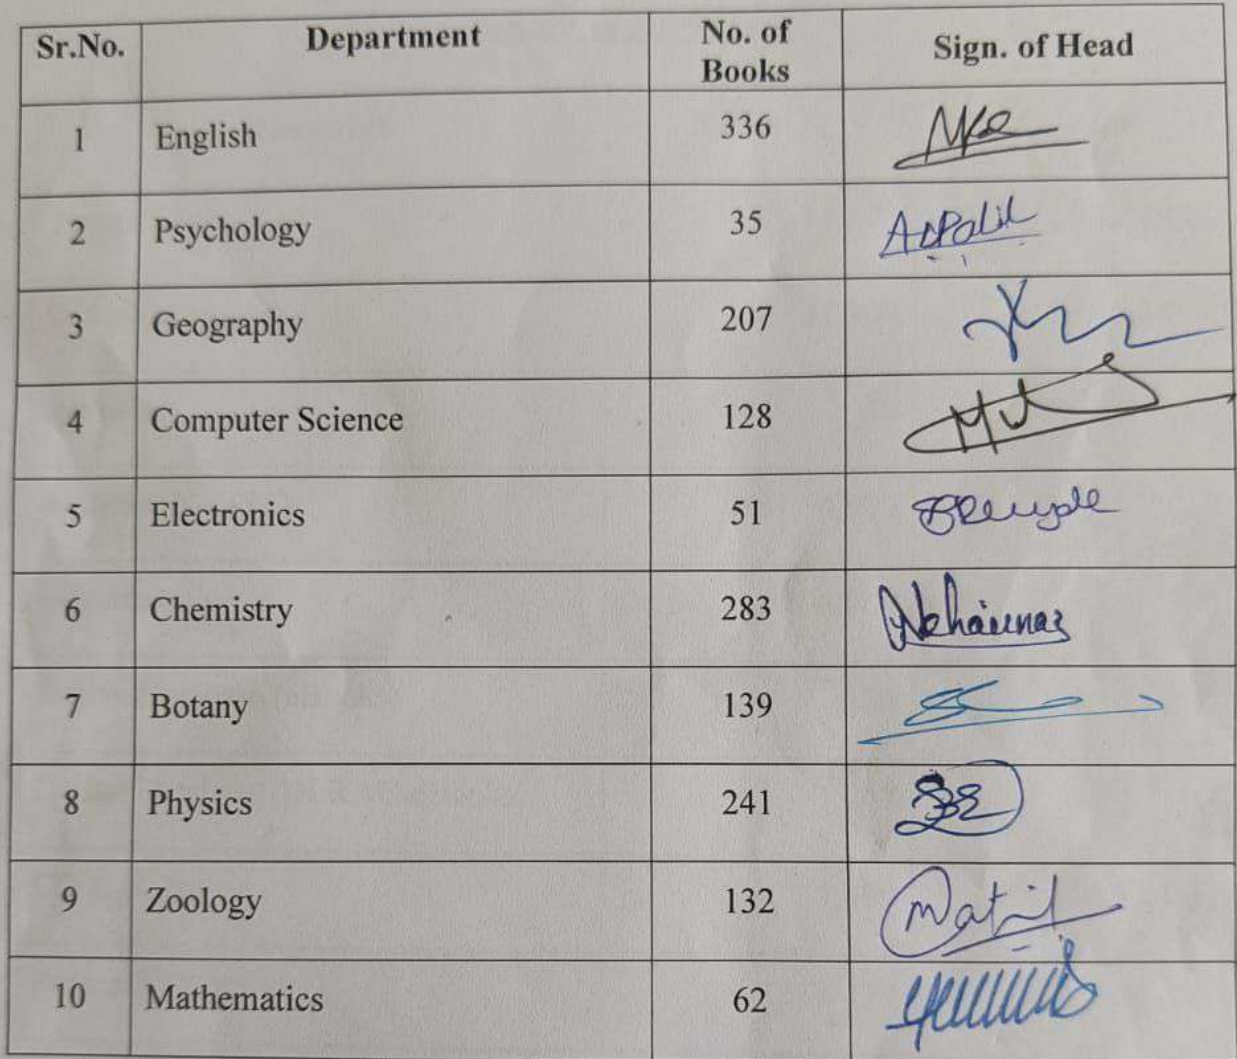 Sr.No. Department No. of Books Sign. of Head
1 English 336
2 Psychology 35
3 Geography 207
4 Computer Science 128
5 Electronics 51
6 Chemistry 283
7 Botany 139
8 Physics 241
9 Zoology 132
10 Mathematics 62